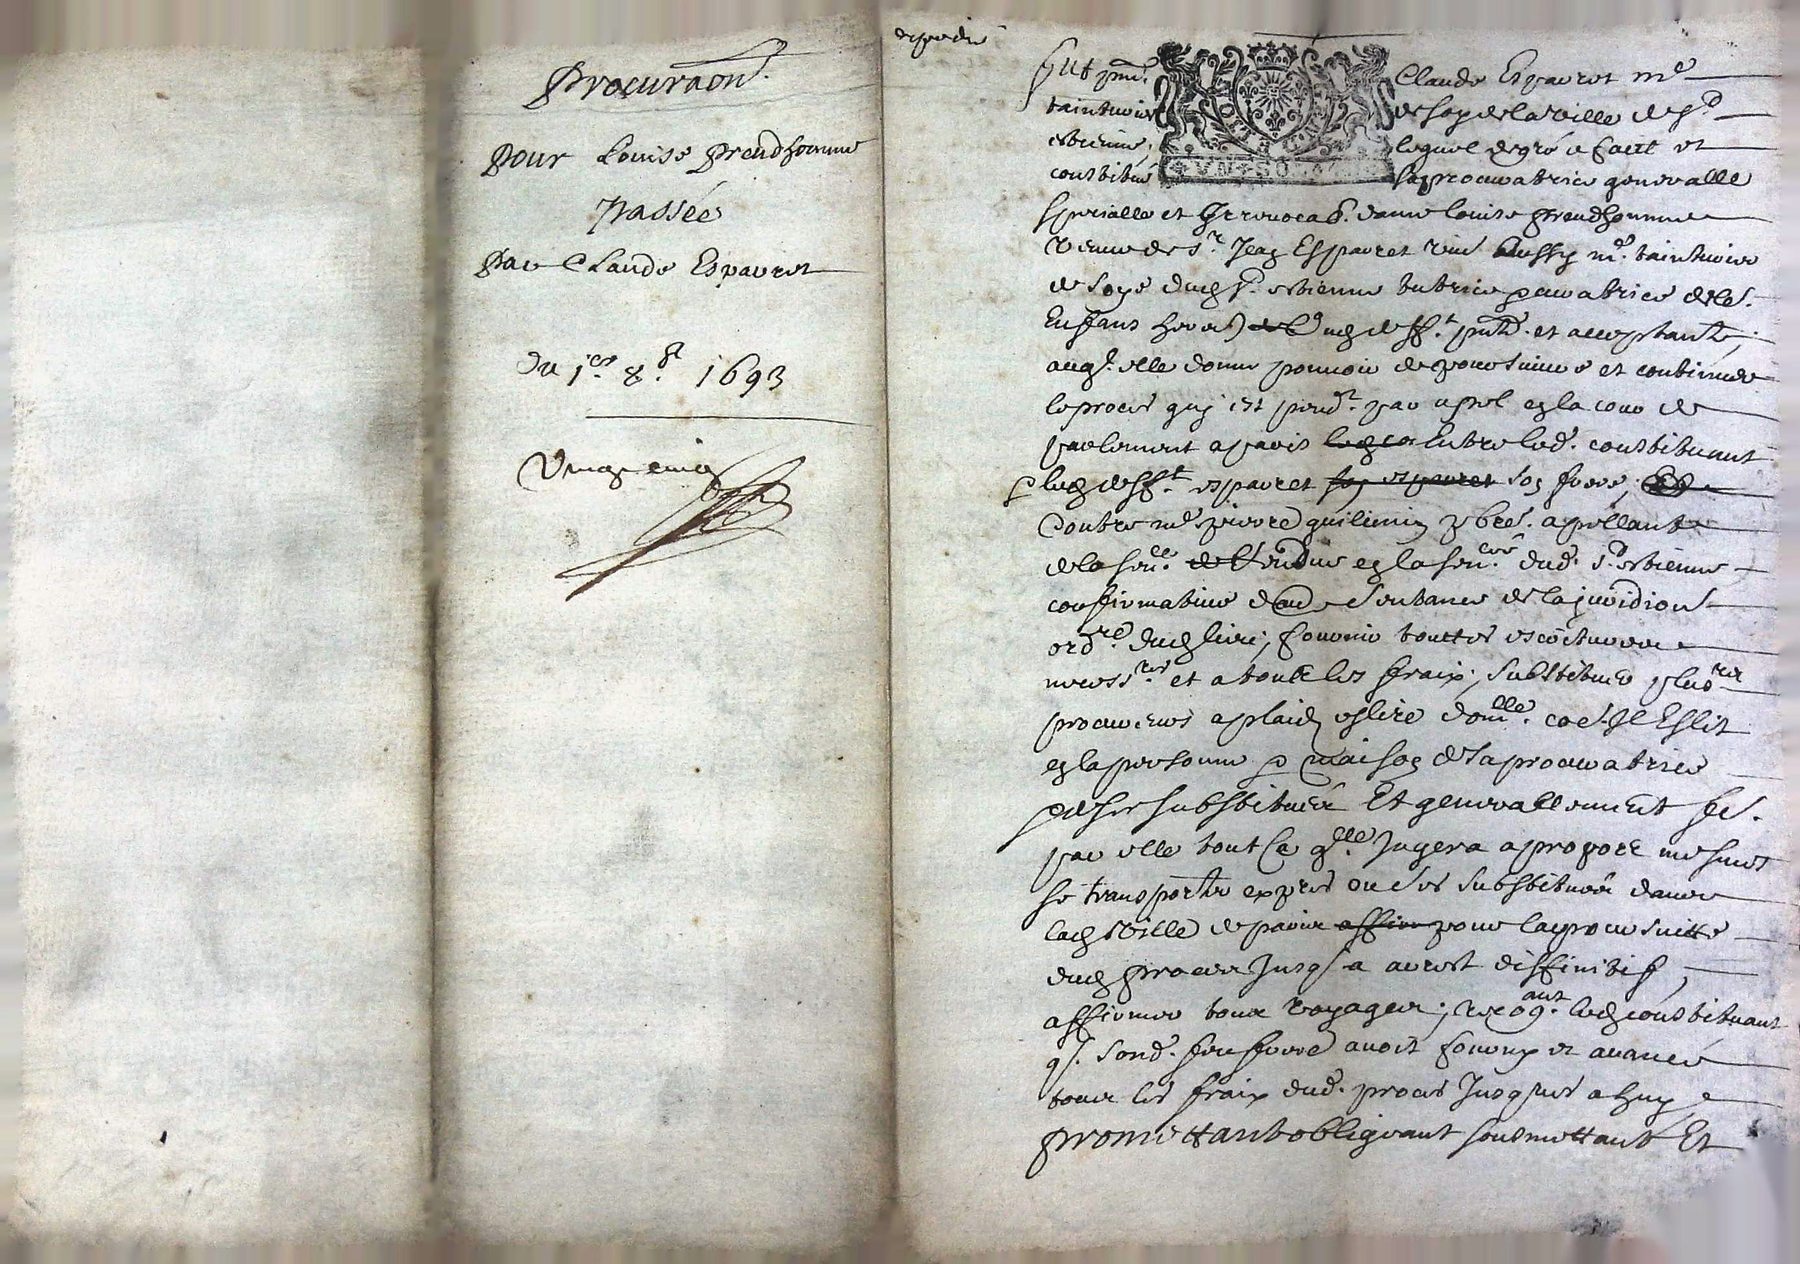 Procuraon.
pour Louise Preudhomme
Passée
Par Claude Espauret
du 1er. 8b. 1693
Vingt cinq
expediè
fut pnt. Claude Espauret me
tainturier de soye de la ville de St
estienne, lequel de gré a fait et
constitué sa procuratrice generalle
UN SOL
specialle et Irrevocab. dame Louise preudhomme
veuve de sr. Jean Espauret viv. Aussy me. tainturier
de soye dud St. estienne tutrice et curatrice de les.
Enffans herers dud deff.t pnte. et acceptante,
auql. elle donne pouvoir de poursuivre et continuer
le proces quj est pend.t par apel en la cour de
parlement a paris Entre led. constituant
et led deff.t espauret son frere,
Contre me pierre guillemin pbre. apellant
de la sen.ce rendue en la sen.cee dud. St. estienne
confirmative d'aude sentance de la juridion
ord.re dud lieu, fournir touttes escritures
necess.res et a toutz les fraix, substituer plus.rs
procureurs a plaid eslire domlle. coe. Il Eslit
en la personne et maison de sa procuratrice
et de ses substitués Et generallement fe.
par elle tout ce qlle Jugera a propore mesmes
se transporter expres ou ses substitués dans
lad ville de paris pour la poursuitte
dud procès Jusq. a arrest deffinitif,
affirmer tous voyages, recog.ant led constituant
q. sond. feu frere avoit fourny et avancé
tous les fraix dud. proces Jusques a huy
promettant obligeant soubmettant Et